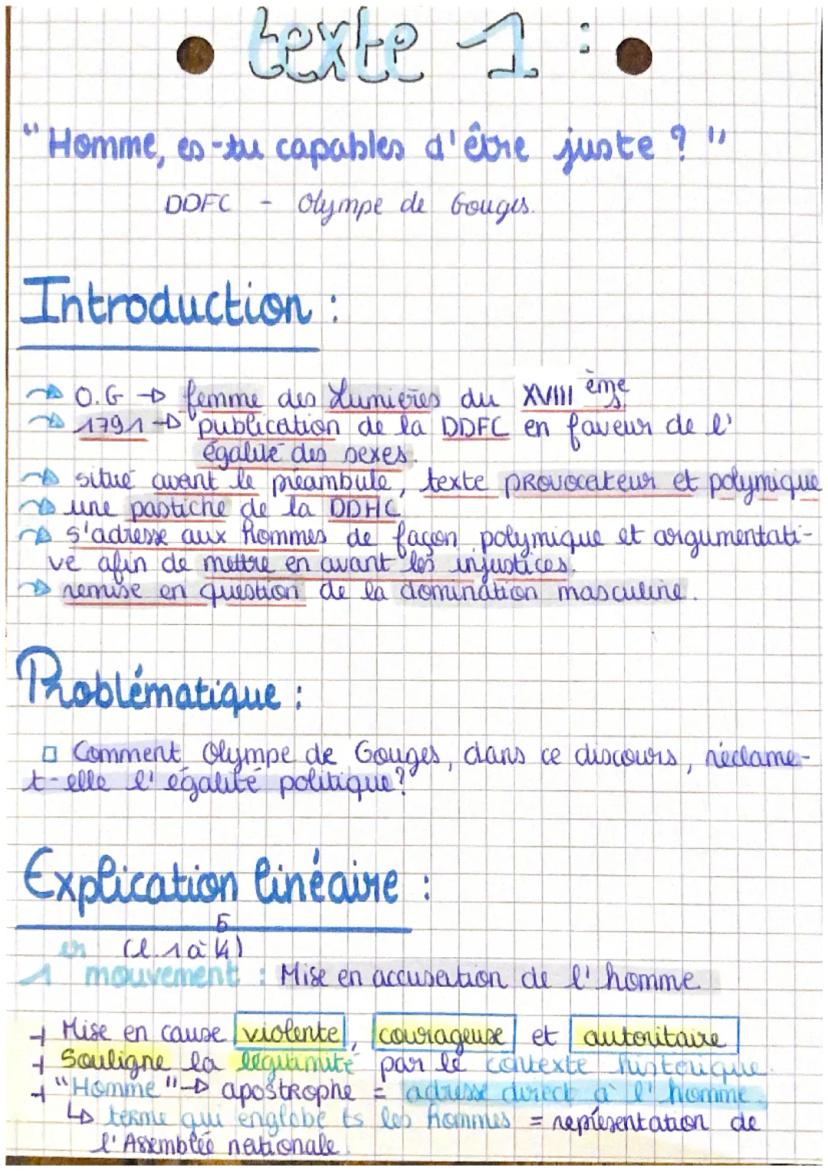 texte 1 :
"Homme, es-tu capables d'être juste ? "
DDFC - Olympe de Gouges.
Introduction :
→ O.G → femme des Lumières du XVIII ème
→ 1791 → publication de la DDFC en faveur de l'
égalité des sexes.
→ situé avant le préambule, texte provocateur et polymique
→ une pastiche de la DDHC
→ s'adresse aux hommes de façon polymique et argumentati-
ve afin de mettre en avant les injustices.
→ remise en question de la domination masculine.
Problématique :
□ Comment Olympe de Gouges, dans ce discours, réclame-
t-elle l'égalité politique?
Explication linéaire :
5
(l.1 à 4)
1er mouvement : Mise en accusation de l'homme
→ Mise en cause violente, courageuse et autoritaire
→ Souligne la légitimité par le contexte historique.
→ "Homme" → apostrophe = adresse direct à l'homme.
↳ terme qui englobe ts les hommes = représentation de
l'Assemblée nationale.